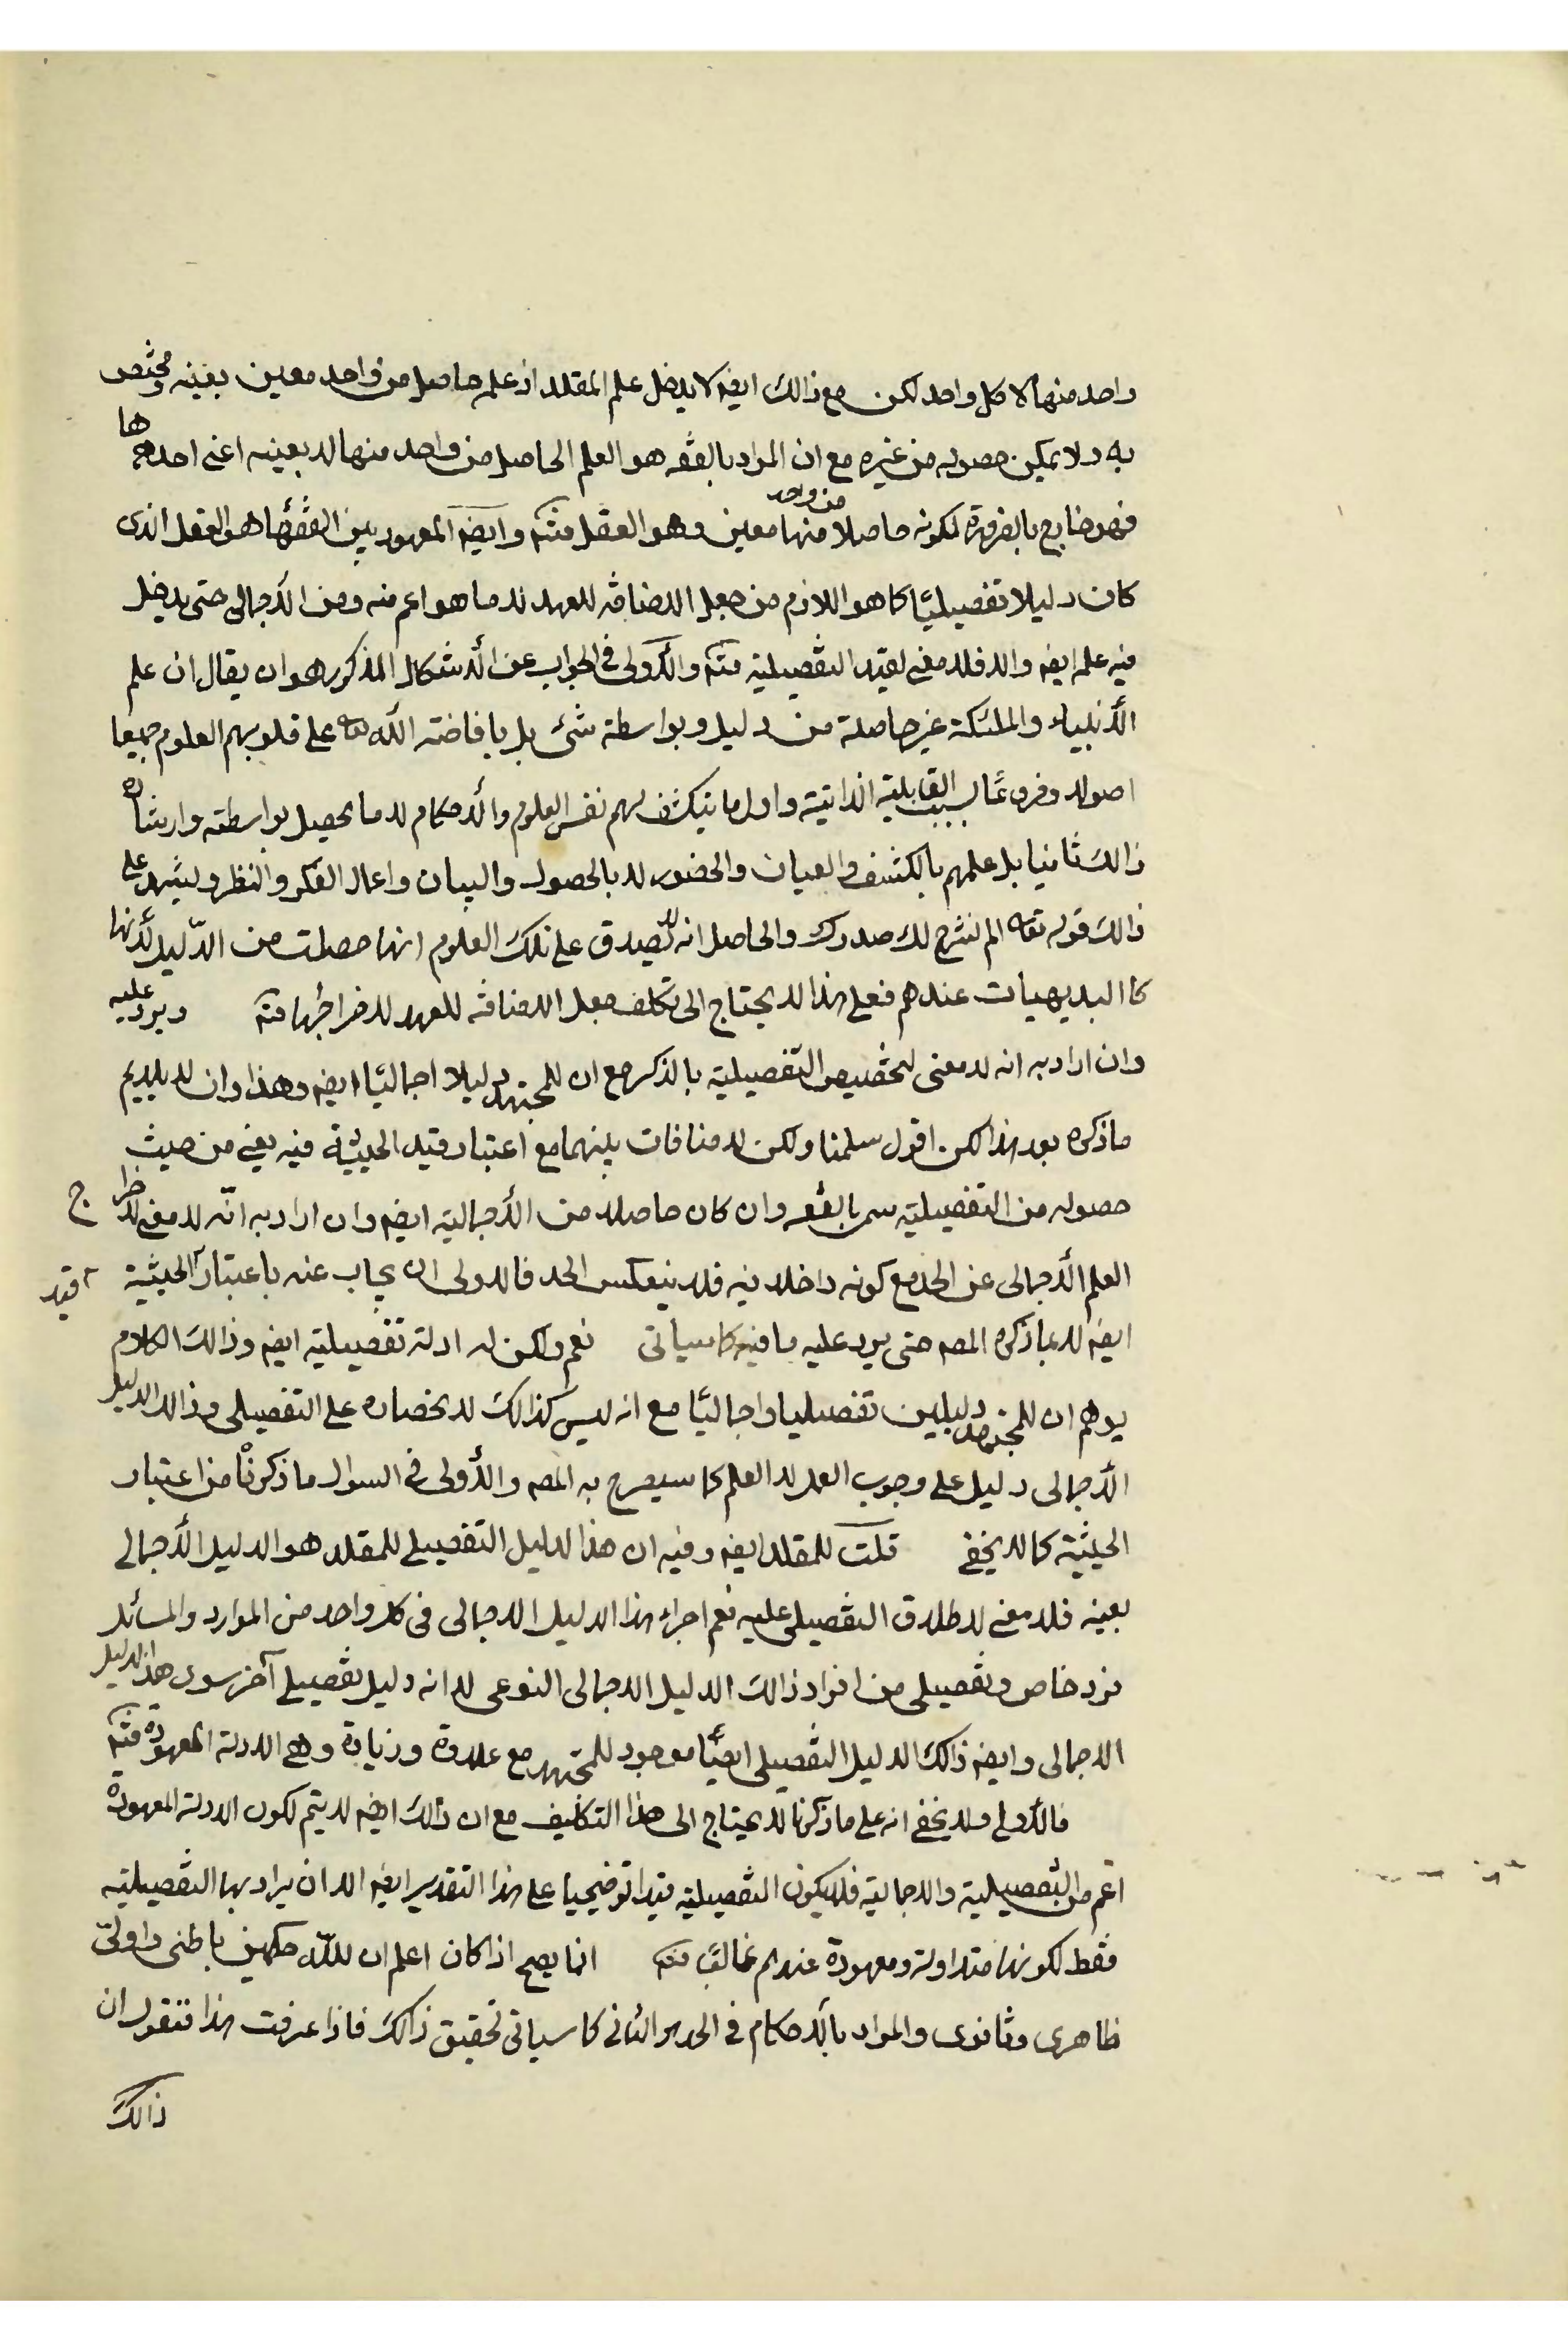 واحد منها لا كل واحد لكن مع ذالك ايضه لا يدخل علم المقلد اذ علمه حاصل من واحد معين بعينه ومختص
به ولا يمكن حصوله من غيره مع ان المراد بالفقه هو العلم الحاصل من واحد منها لا بعينه اعنى احدها
فهو خارج بالضرورة لكونه حاصلا من واحد منها معين وهو العقل فتئم وايضه المعهود بين الفقهاء هو العقل الذى
كان دليلا تفصيليًا كما هو اللازم من جعل الاضافة للعهد لا ما هو اعم منه ومن الأجمالى حتى يدخل
فيه علمه ايضه والا فلا معنى لقيد التفصيلية فتئم والأولى فى الجواب عن الأشكال المذكور هو ان يقال ان علم
الأنبياء والملئكة غير حاصلة من دليل وبواسطة شئ بل بافاضة الله تعه على قلوبهم العلوم جميعا
اصولا وفروعًا بسبب القابلية الذاتية واول ما ينكشف لهم نفس العلوم والأحكام لا ما يحصل بواسطته وارشاده
ذالك ثانيا بل علمهم بالكشف والعيان والحضور لا بالحصول والبيان واعمال الفكر والنظر وليشهد على
ذالك قوله تعه الم نشرح لك صدرك والحاصل انه لا يصدق على تلك العلوم انها حصلت من الدّليل لأنها
كا البديهيات عندهم فعلى هذا لا يحتاج الى تكلف جعل الاضافة للعهد لاخراجها فتئم ويرد عليه
وان اراد به انه لا معنى لتخصيص التفصيلية بالذكر مع ان للمجتهد دليلا اجماليًا ايضه وهذا وان لا يلايم
ما ذكره بعد هذا لكن اقول سلمنا ولكن لا منافات بينهما مع اعتبار قيد الحيثية فيه يعنى من حيث
حصوله من التفصيلية سمى بالفقه وان كان حاصلا من الأجمالية ايضه وان اراد به انّه لا معنى لاخراج
العلم الأجمالى عن الحد مع كونه داخلا فيه فلا ينعكس الحد فالاولى ان يجاب عنه باعتبار قيد الحيثية
ايضه لا بما ذكره المصه حتى يرد عليه ما فيه كما سياتى نعم ولكن له ادلة تفصيلية ايضه وذالك الكلام
يوهم ان للمجتهد دليلين تفصيليا واجماليًا مع انه ليس كذالك لانحصاره على التفصيلى وذالك الدليل
الأجمالى دليل على وجوب العمل لا العلم كما سيصرح به المصه والأولى فى السوال ما ذكرنا من اعتبار
الحيثية كما لا يخفى قلت للمقلد ايضه وفيه ان هذا الدليل التفصيلى للمقلد هو الدليل الأجمالى
بعينه فلا معنى لاطلاق التفصيلى عليه نعم اجراء هذا الدليل الاجمالى فى كل واحد من الموارد والمسائل
فرد خاص وتفصيلى من افراد ذالك الدليل الاجمالى النوعى لا انه دليل تفصيلى آخر سوى هذا الدليل
الاجمالى وايضه ذالك الدليل التفصيلى ايضًا موجود للمجتهد مع علاوة وزيادة وهى الادلة المعهودة فتئم
فالأولى ولا يخفى انه على ما ذكرنا لا يحتاج الى هذا التكليف مع ان ذالك ايضه لا يتم لكون الادلة المعهودة
اعم من التفصيلية والاجمالية فلا يكون التفصيلية قيدا توضيحيا على هذا التقدير ايضه الا ان يراد بها التفصيلية
فقط لكونها متداولة ومعهودة عندهم غالبًا فتئم انما يصح اذا كان اعلم ان للله حكمين باطنى واولىّ
ظاهرى وثانوى والمراد بالأحكام فى الحد هو الثانى كما سياتى تحقيق ذالك فاذا عرفت هذا فنقول ان
ذالك